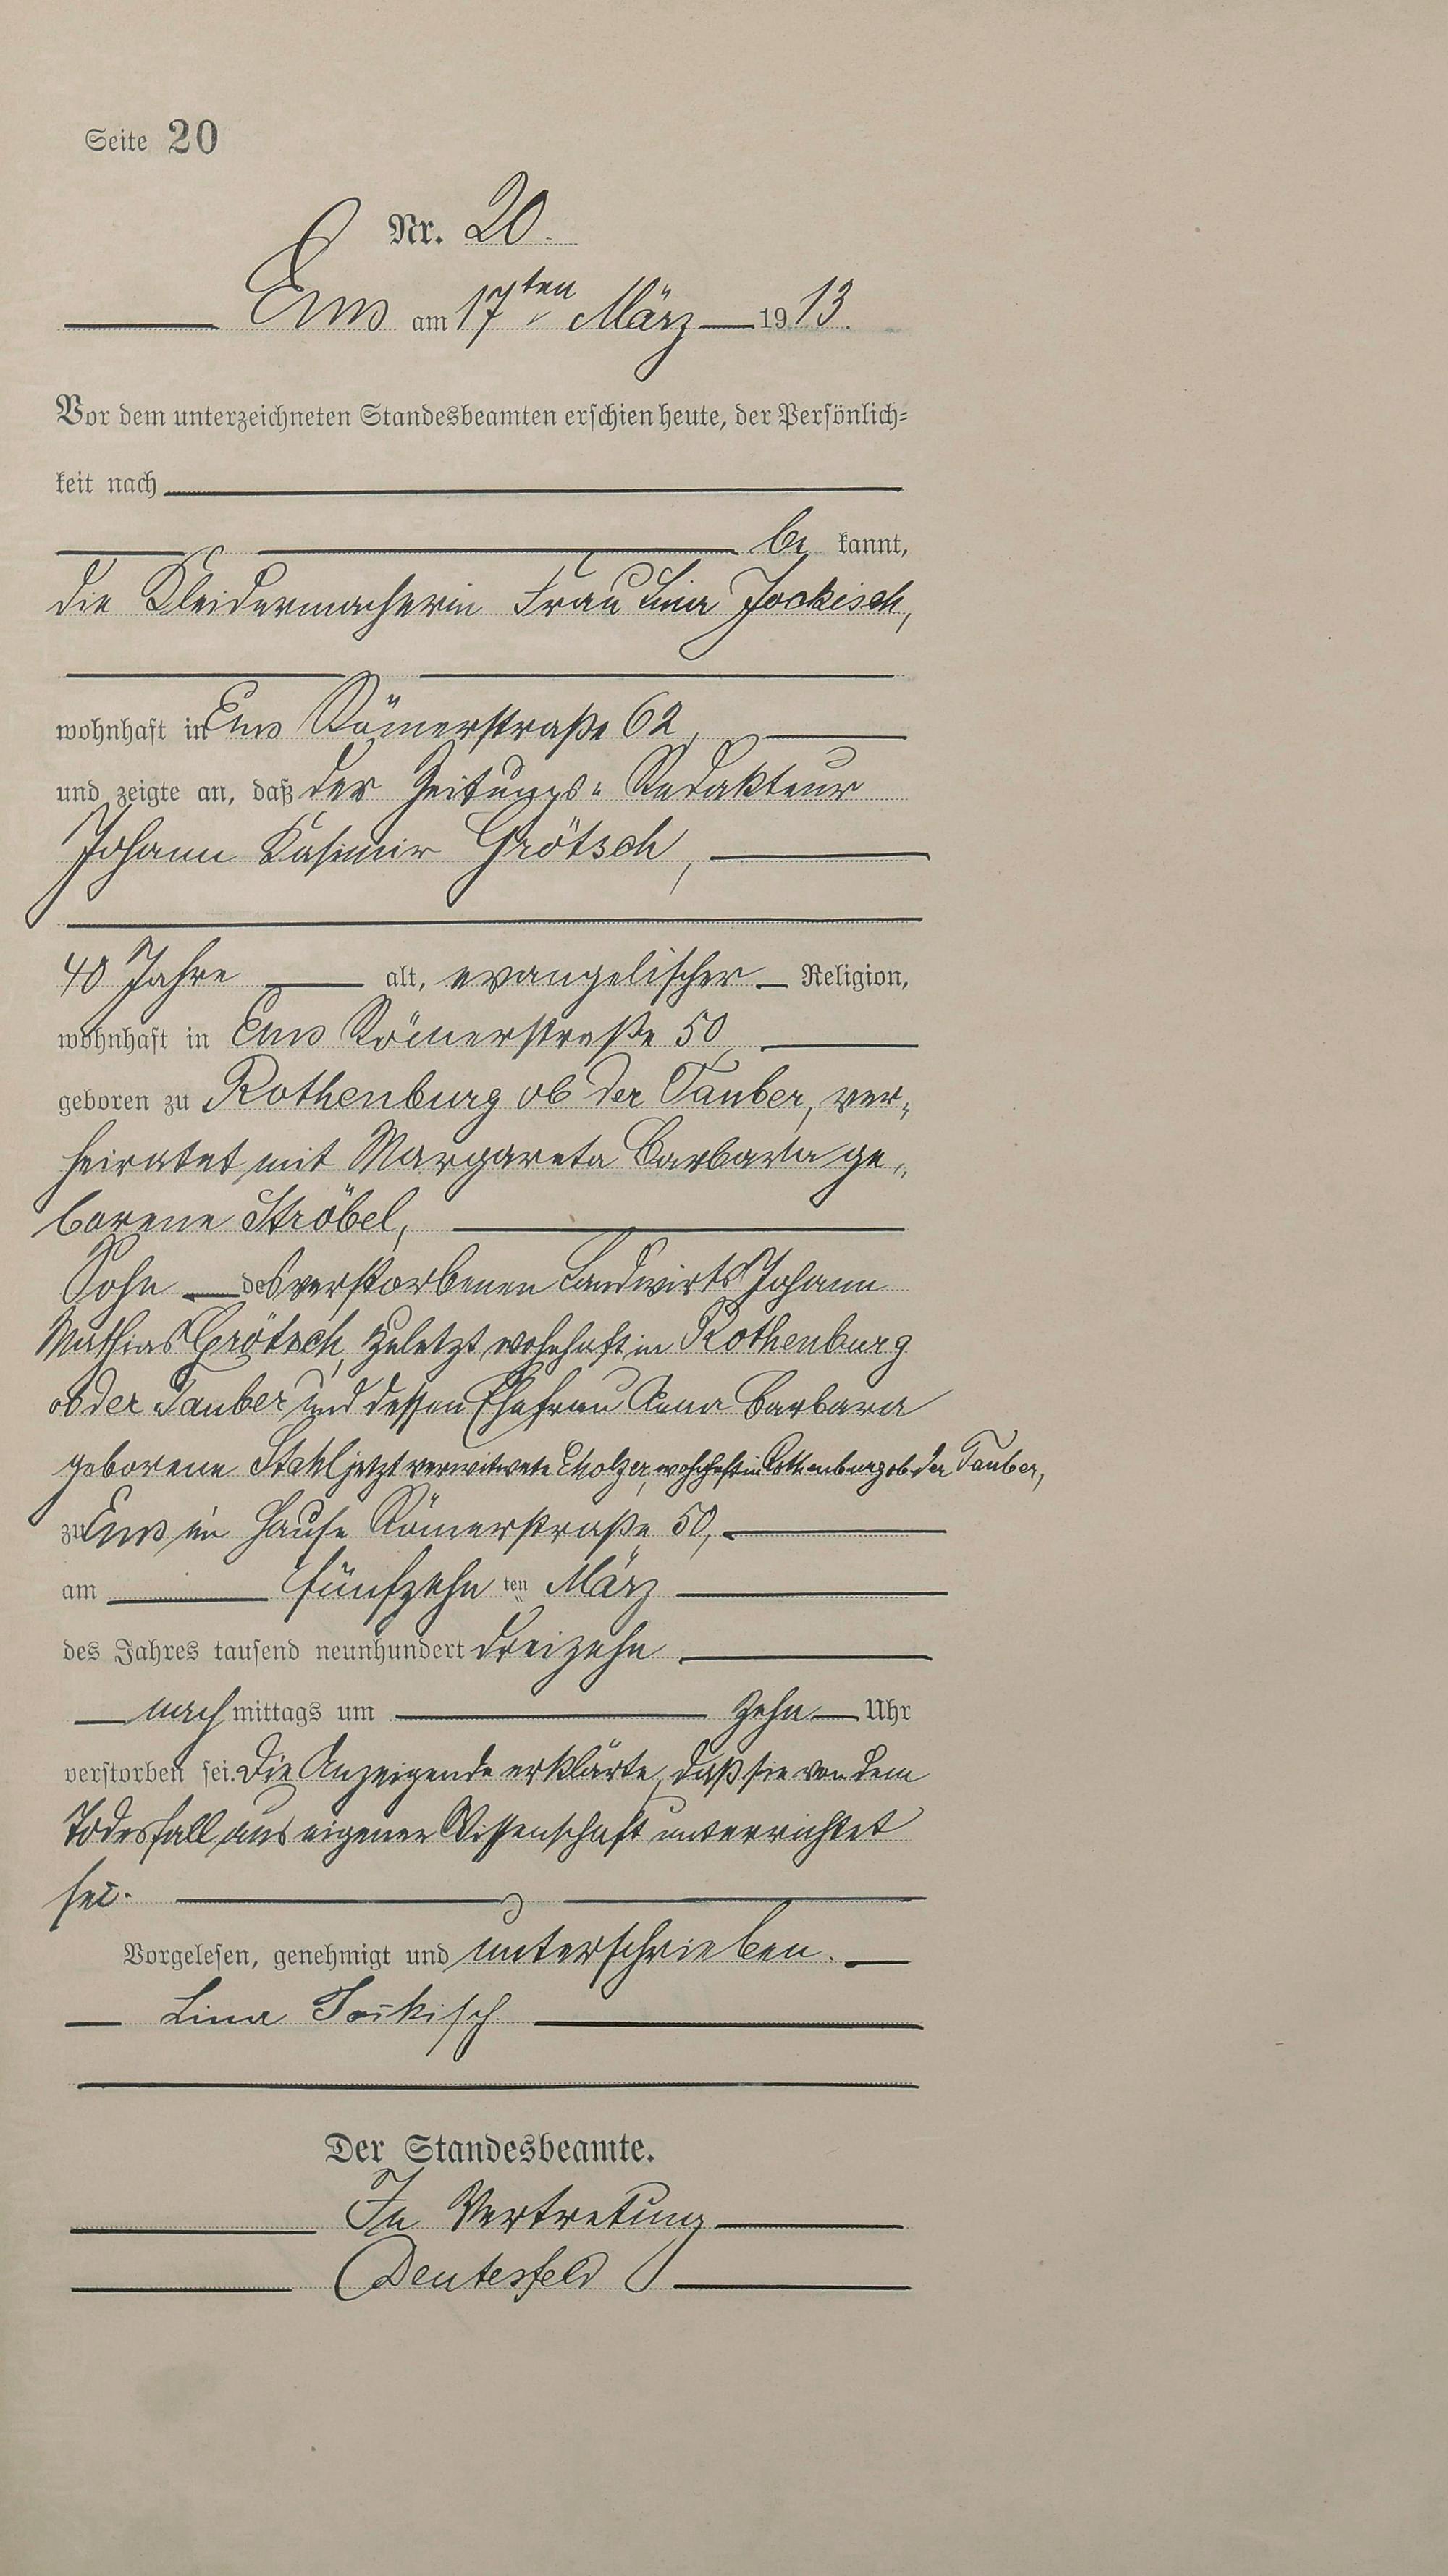 Seite 20
Nr. 20.
Ems am 17ten März 1913.
Vor dem unterzeichneten Standesbeamten erschien heute, der Persönlich=
keit nach
be kannt,
die Kleidermacherin Frau Lina Jockisch,
wohnhaft in Ems Römerstraße 62,
und zeigte an, daß der Zeitungs= Redakteur
Johann Kasimir Grötsch,
40 Jahre alt, evangelischer Religion,
wohnhaft in Ems Römerstraße 50,
geboren zu Rothenburg ob der Tauber, ver=
heiratet mit Margareta Barbara ge=
borene Ströbel,
Sohn des verstorbenen Landwirts Johann
Mathias Grötsch, zuletzt wohnhaft in Rothenburg
ob der Tauber und dessen Ehefrau Anna Barbara
geborene Stahl jetzt verwitwete, wohnhaft in Rothenburg ob der Tauber,
zu Ems im Hause Römerstraße 50,
am fünfzehn ten März
des Jahres tausend neunhundert dreizehn
nach mittags um zehn Uhr
verstorben sei. Die Anzeigende erklärte, daß sie von dem
Todesfall aus eigener Wissenschaft unterrichtet
sei.
Vorgelesen, genehmigt und unterschrieben.
Lina Jockisch
Der Standesbeamte.
In Vertretung
Deutesfeld